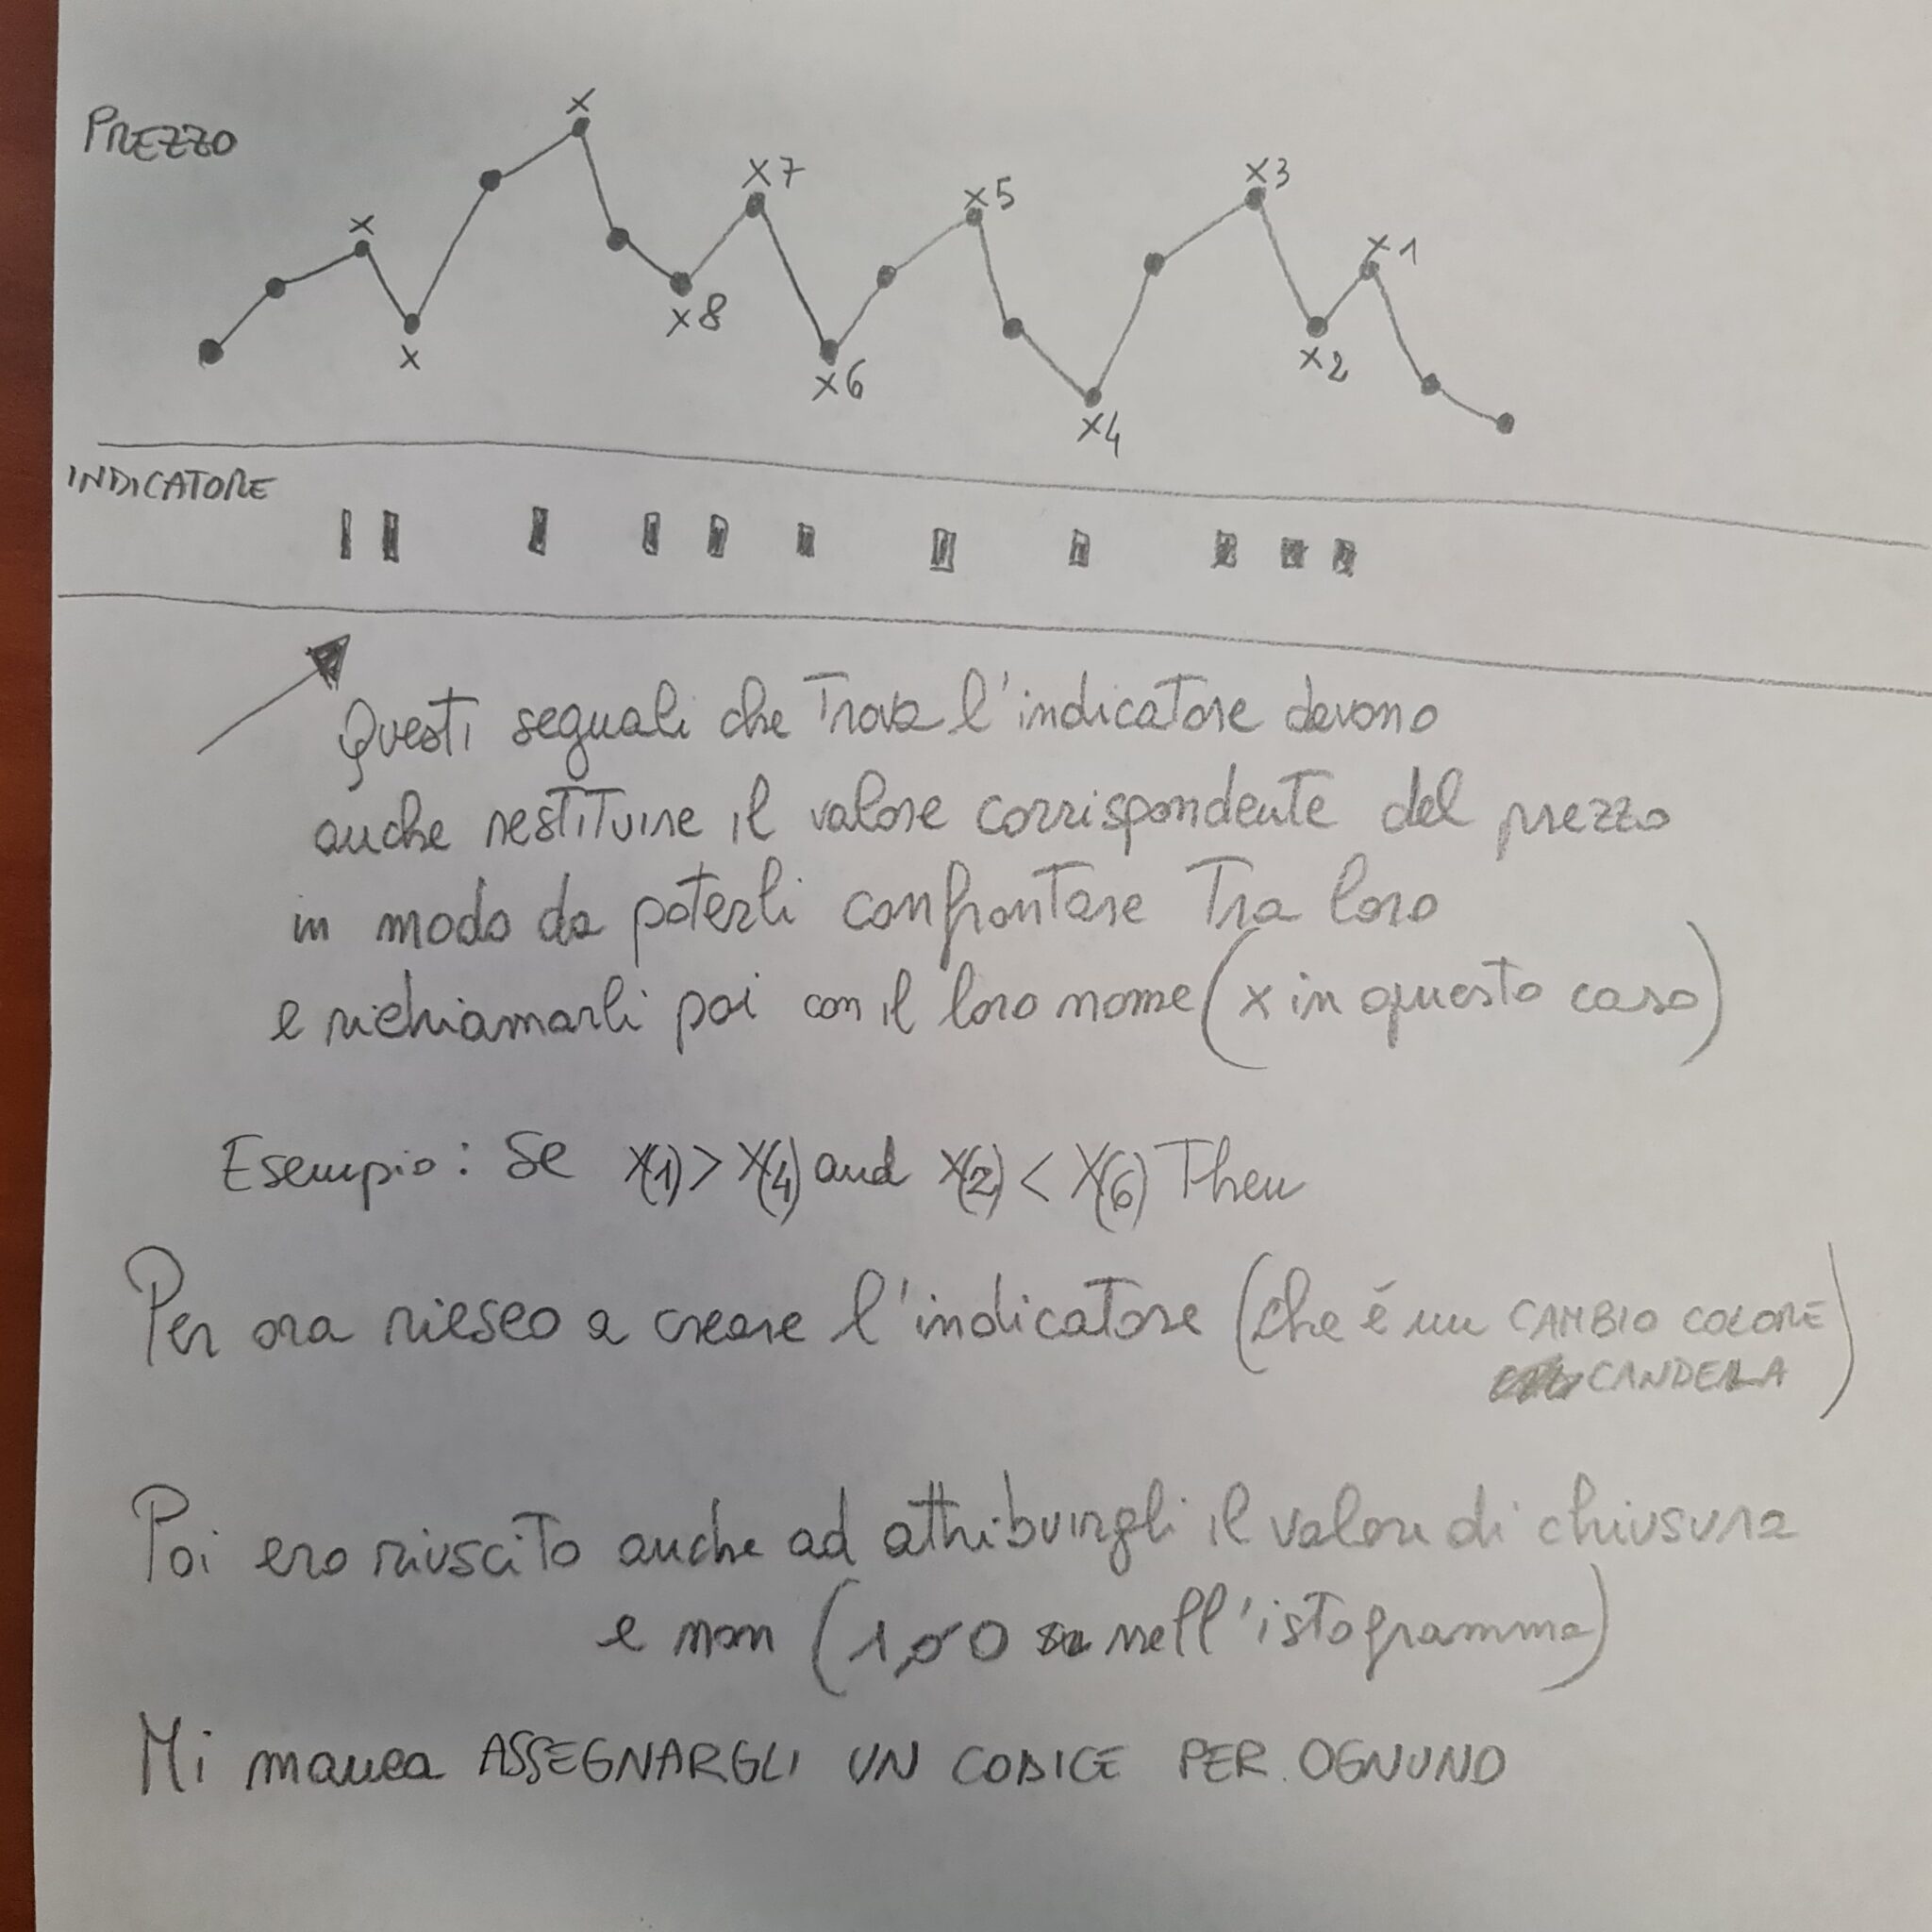 PREZZO
x
x
x
x8
x7
x6
x5
x4
x3
x2
x1
INDICATORE
Questi segnali che Trova l'indicatore devono
anche restituire il valore corrispondente del prezzo
in modo da poterli confrontare Tra loro
e richiamarli poi con il loro nome (x in questo caso)
Esempio: Se X(1) > X(4) and X(2) < X(6) Then
Per ora riesco a creare l'indicatore (che é un CAMBIO COLORE
CANDELA)
Poi ero riuscito anche ad attribuirgli il valore di chiusura
e non (1 o 0 nell'istogramma)
Mi manca ASSEGNARGLI UN CODICE PER OGNUNO